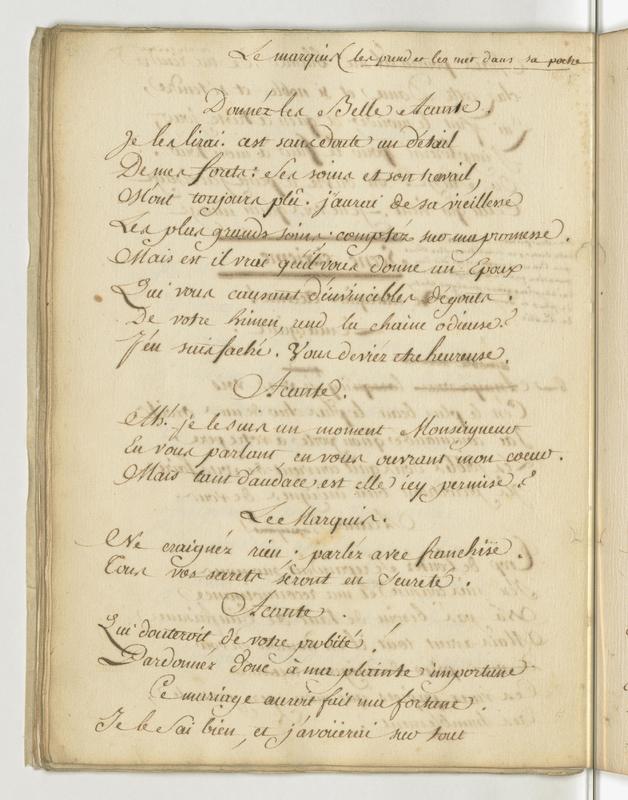 Le marquis (les prend et les met dans sa poche
Donnéz les Belle Acante.
Je les lirai. c'est sans doute un détail
De mes forets: Ses soins et son travail,
M'ont toujours plû. j'aurai de sa vieillesse
Les plus grands soins: comptéz sur ma promesse.
Mais est il vrai qu'il vous donne un Epoux
Qui vous causant d'invincibles dégouts.
De votre himen, rend la chaine odieuse?
J'en suis faché. Vous devriéz etre heureuse.
Acante.
Ah! je le suis un moment Monseigneur
En vous parlant en vous ouvrant mon coeur.
Mais tant d'audace est elle icy permise?
Le Marquis.
Ne craignéz rien; parléz avec franchise.
Tous vos secrets seront en Seureté.
Acante.
Qui douteroit de votre probité!
Pardonnéz donc à ma plainte importune
Ce mariage auroit fait ma fortune.
Je le Sai bien, et j'avoüerai sur tout